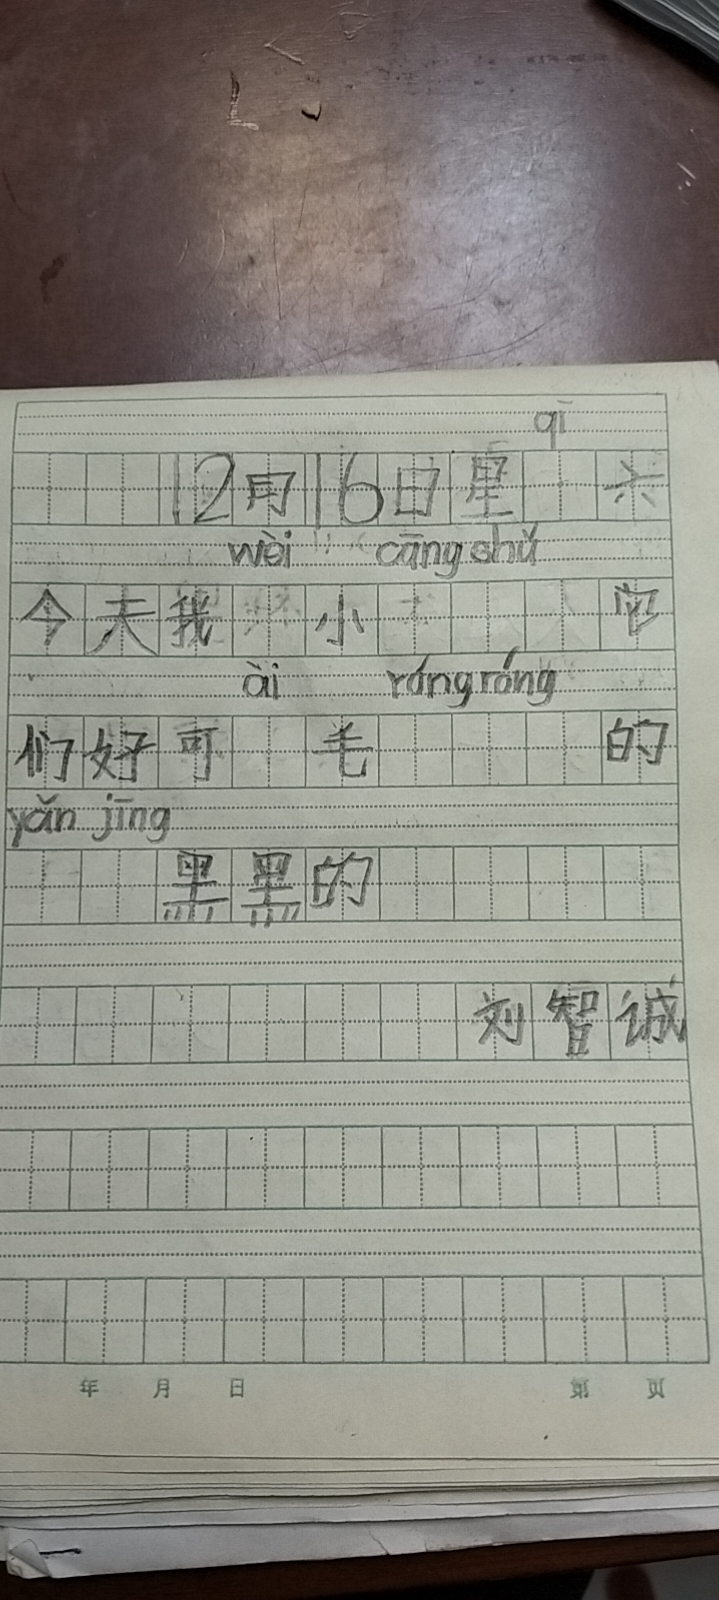 qī
12月16日星 六
wèi cāng shǔ
今天我 小 它
ài róng róng
们好可 毛 的
yǎn jīng
黑黑的
刘智诚
年 月 日 第 页